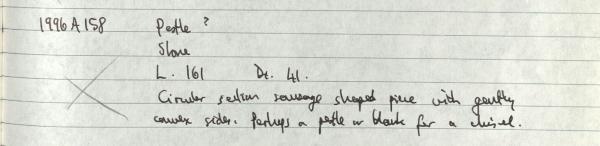 1996 A 158 Pestle ?
Stone
L. 161 Dt. 41.
Circular section sausage shaped piece with gently
convex sides. Perhaps a pestle or blank for a chisel.